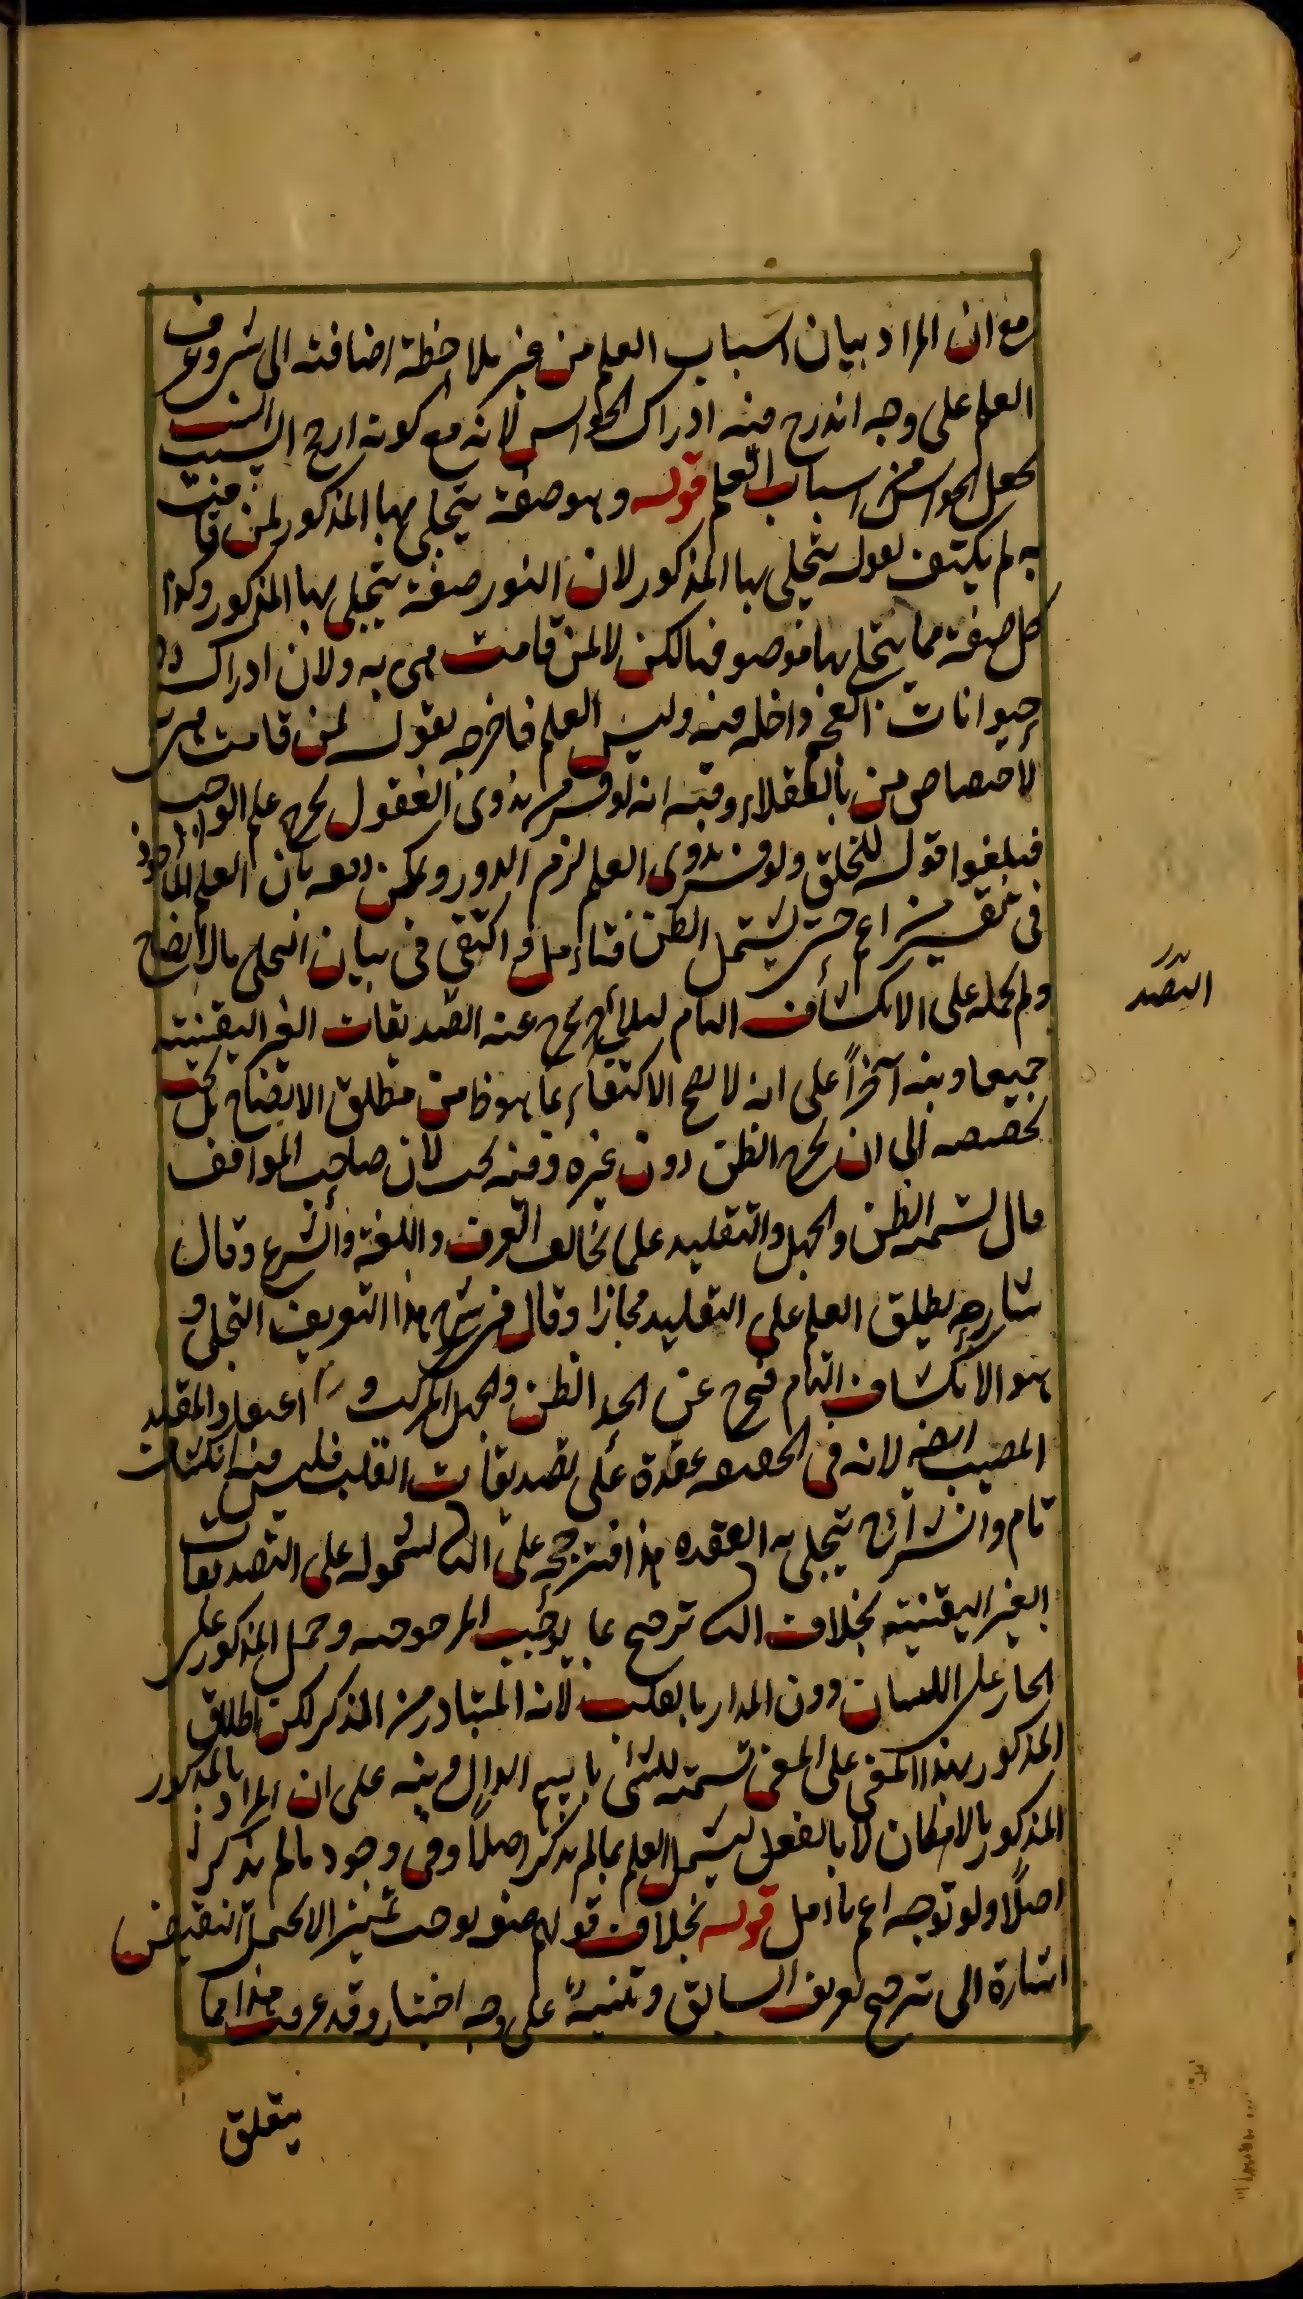 مع ان المراد بيان اسباب العلم من غير ملاحظة اضافته الى شئ وعرف
العلم على وجه اندرج فيه ادراك الحواس لانه مع كونه ارجح انسب
بجعل الحواس من اسباب العلم قوله وهو صفة يتجلى بها المذكور لمن قامت
به لم يكتف بقوله يتجلى بها المذكور لان النور صفة يتجلى بها المذكور وكذا
كل صفة مما يتجلى بها موصوفها لكن لا لمن قامت هى به ولان ادراك
حيوانات العجم داخلة فيه وليس العلم فاخرجه بقوله لمن قامت هى
لاختصاص من بالعقلاء وفيه انه لو فسر بذوى العقول لخرج علم الواجب
فيلغوا قوله للخلق ولو فسر بذوى العلم لزم الدور ويمكن دفعه بان العلم الماخوذ
فى تفسير من اعم حتى يشتمل الظن فتاءمل واكتفى فى بيان التجلى بالاتضاح
ولم يحمله على الانكشاف التام لئلا يخرج عنه التصديقات الغير اليقينية
جميعا ونبه آخرا على انه لا يصح الاكتفاء بما هو ظ من مطلق الاتضاح بل يجب
تخصيصه الى ان يخرج الظن دون غيره وفيه بحث لان صاحب المواقف
قال تسمية الظن والجهل والتقليد علما تخالف العرف واللغة والشرع وقال
شارحه يطلق العلم على التقليد مجازا وقال فى شرح هذا التعريف التجلى و
هو الانكشاف التام فخرج عن الحد الظن والجهل المركب و اعتقاد المقلد
المصيب ايضا لانه فى الحقيقة عقدة على تصديقات القلب فليس فيه انكشاف
تام وانشراح يتجلى به العقدة هذا فترجيحه على الثانى لشموله على التصديقات
الغير اليقينية بخلاف الثانى ترجيح بما يوجب المرجوحية وحمل المذكور على
الجار على اللسان دون المدار بالقلب لانه المتبادر من الذكر لكن اطلاق
المذكور بهذا المعنى على المعنى تسمية للشئ باسم الدال ونبه على ان المراد بالمذكور
المذكور بالامكان لا بالفعل ليشمل العلم بما لم يذكر اصلا وفى وجود مالم يذكر
اصلا ولو توجه اعم تاءمل قوله بخلاف قولهم صفة توجب تمييزا لا يحتمل النقيض
اشارة الى ترجيح تعريف السابق وتنبيه على وجه اختياره وقد عرفت هذا مما
يتعلق
التصد